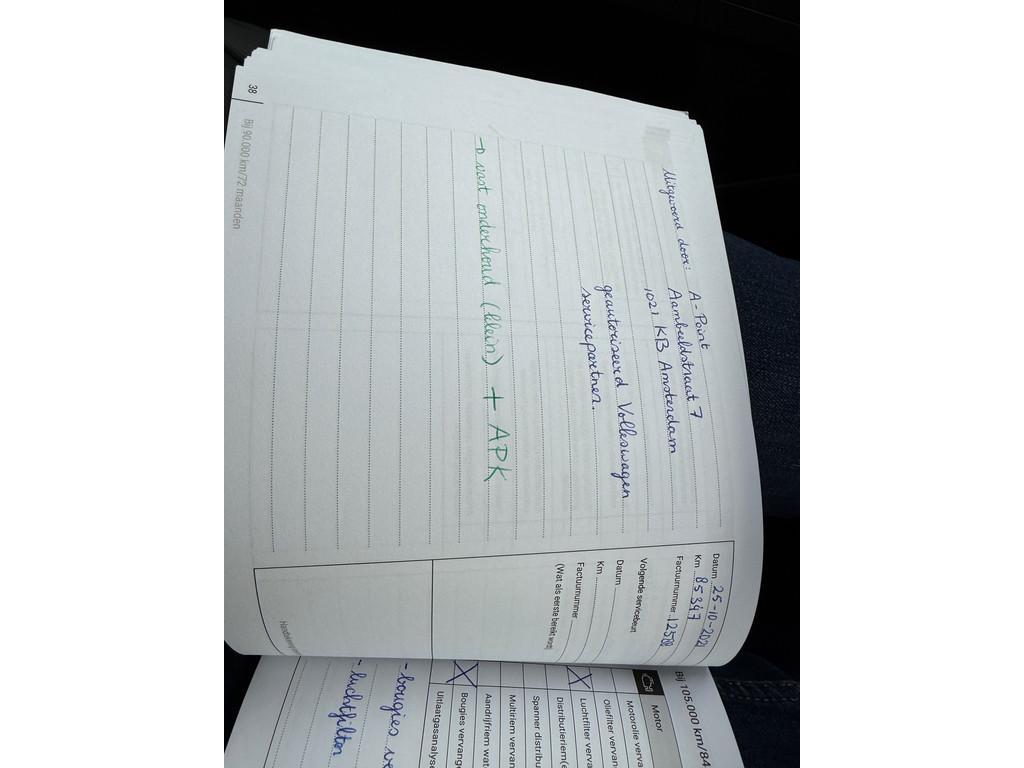 Uitgevoerd door: A-Point
Aambeeldstraat 7
1021 KB Amsterdam
geautoriseerd Volkswagen
servicepartner.
→ vast onderhoud (klein) + APK
Datum 25-10-2021
Km 85347
Factuurnummer
Volgende servicebeurt
Datum
Km
Factuurnummer
(Wat als eerste bereikt wordt)
38
Bij 90.000 km/72 maanden
Bij 105.000 km/84
Motor
Motorolie verva
Oliefilter vervan
X Luchtfilter verva
Distributieriem(e
Spanner distribu
Multiriem vervan
Aandrijfriem wat
X Bougies vervange
Uitlaatgasanalyse
- bougies ve
- luchtfilter